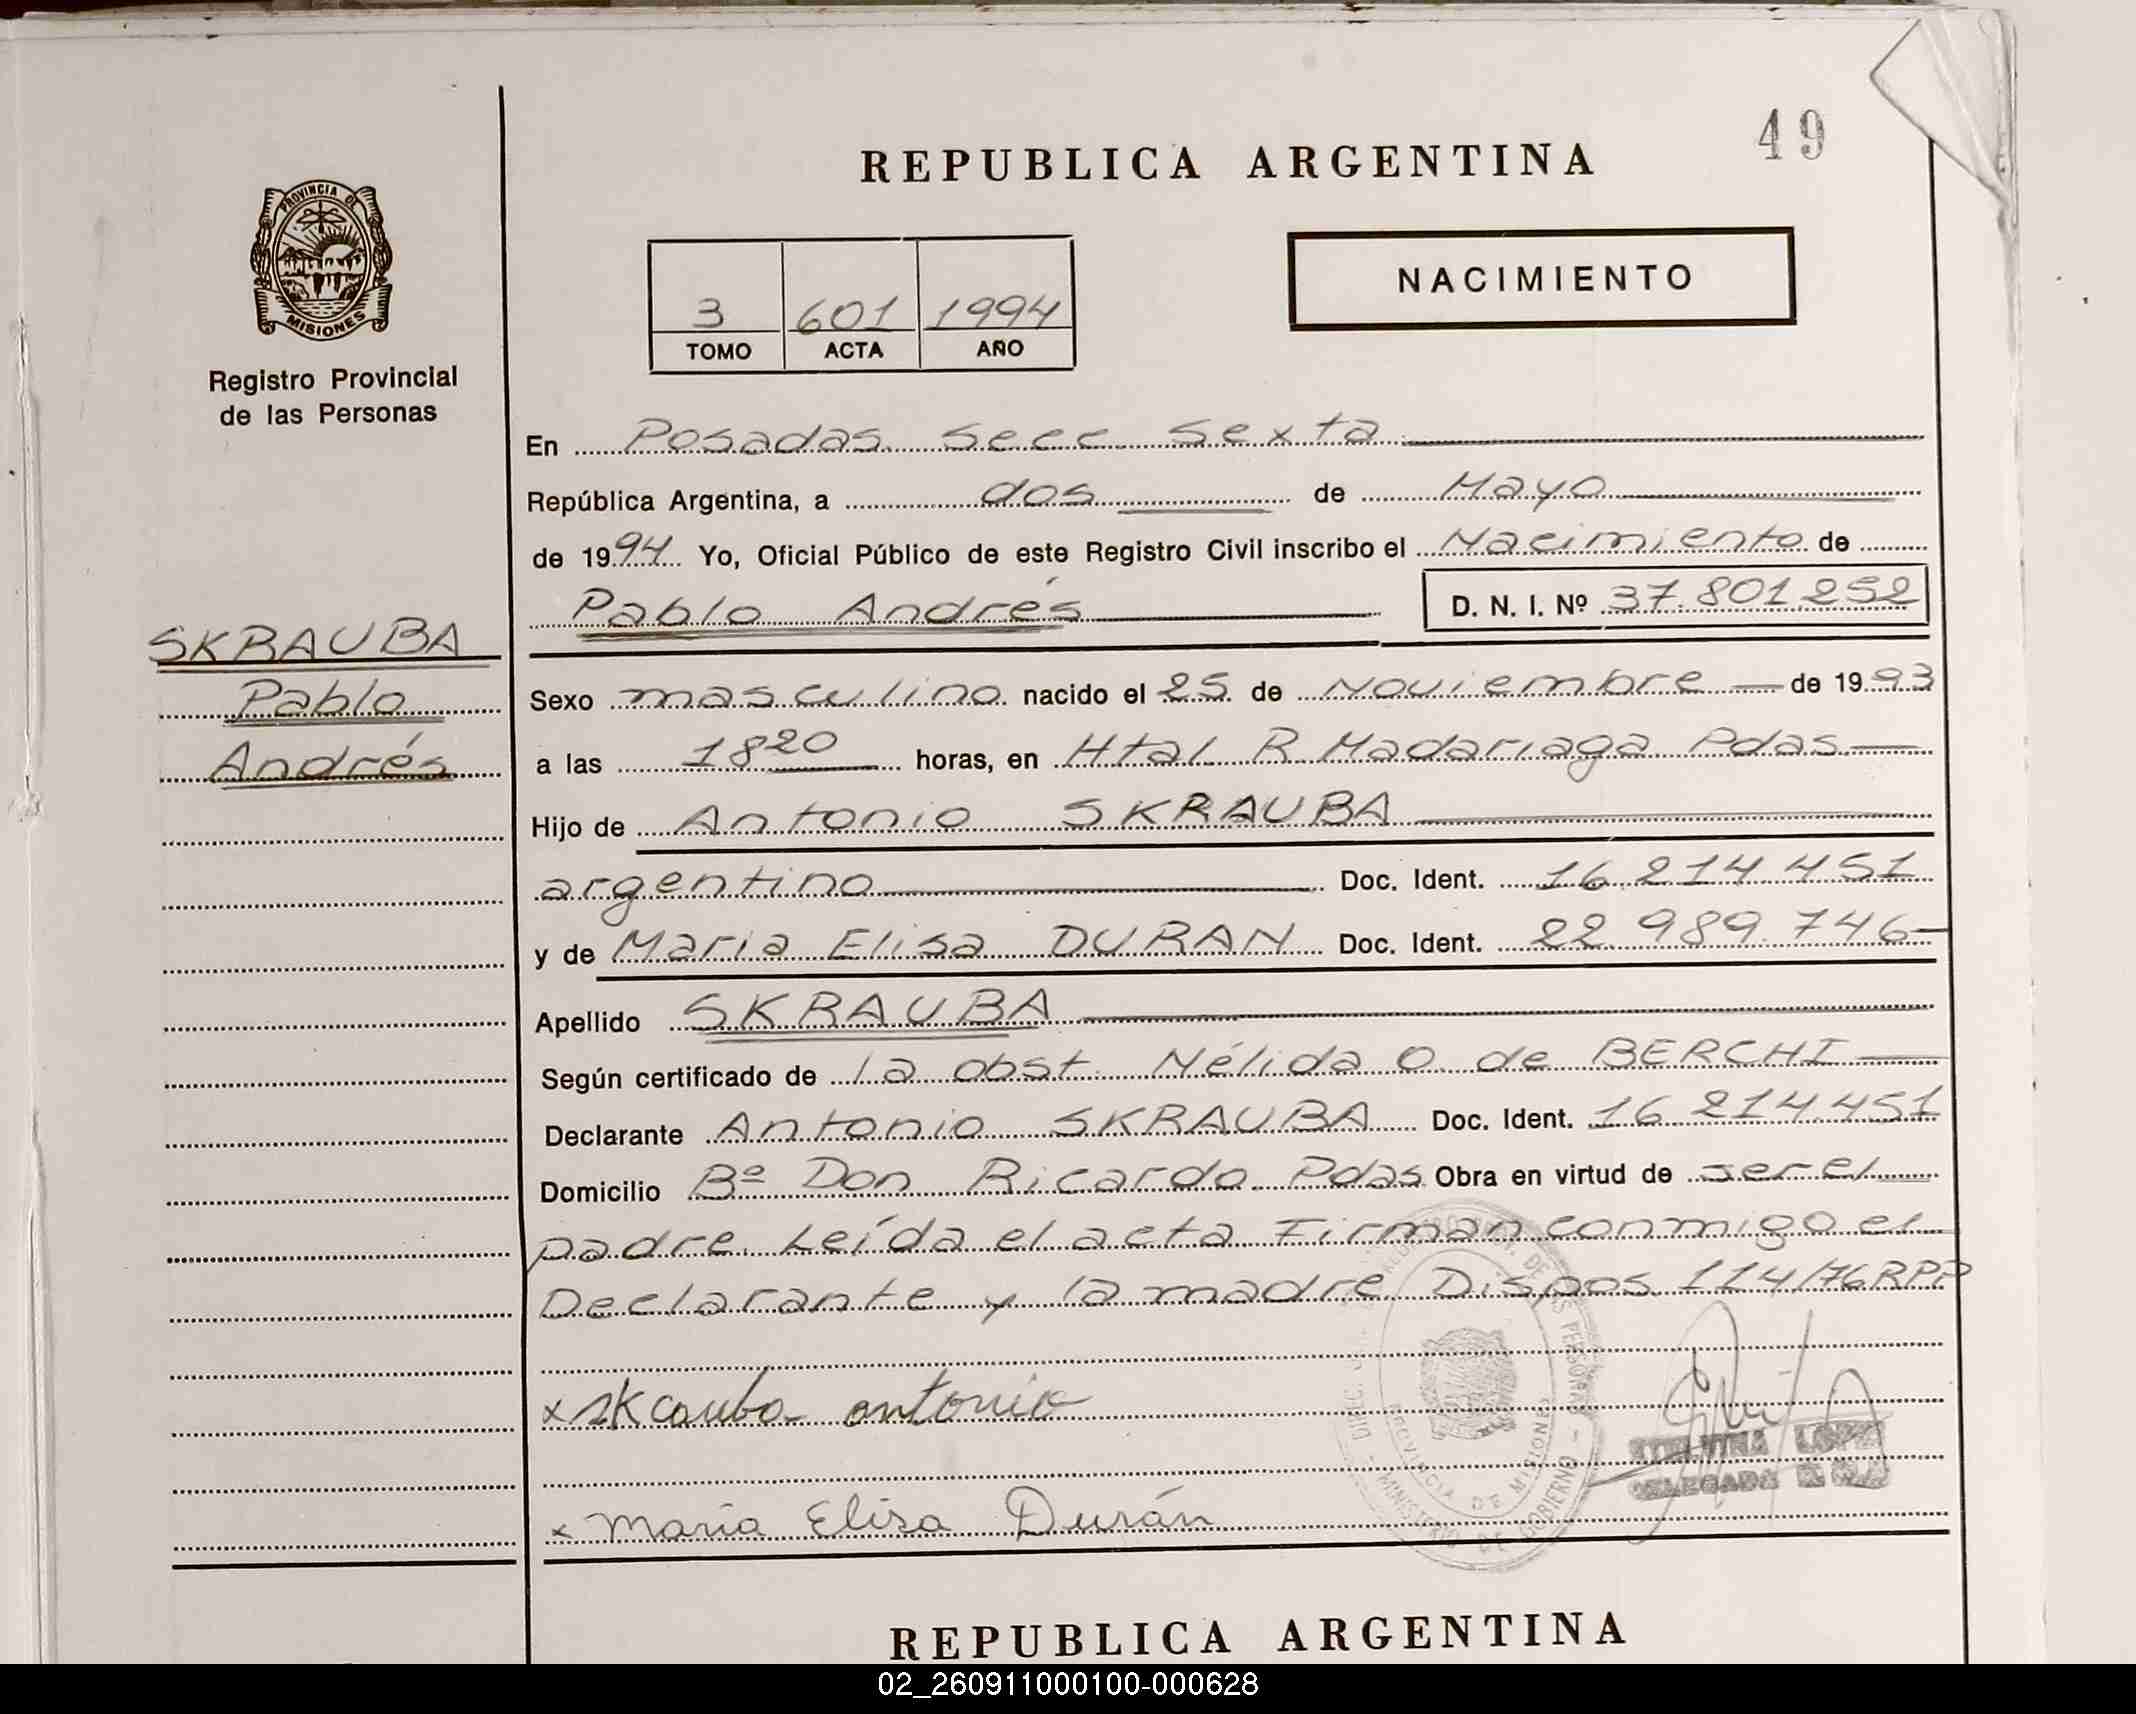 49
REPUBLICA ARGENTINA
PROVINCIA DE
MISIONES
Registro Provincial
de las Personas
3 601 1994
TOMO ACTA AÑO
NACIMIENTO
En Posadas Secc Sexta
República Argentina, a dos de Mayo
de 1994 Yo, Oficial Público de este Registro Civil inscribo el Nacimiento de
Pablo Andrés D. N. I. Nº 37.801.252
SKRAUBA
Pablo
Andrés
Sexo masculino nacido el 25 de Noviembre de 1993
a las 18 20 horas, en Htal R Madariaga Pdas
Hijo de Antonio SKRAUBA
argentino Doc. Ident. 16.214.451
y de Maria Elisa DURAN Doc. Ident. 22.989.746
Apellido SKRAUBA
Según certificado de la obst Nélida O. de BERCHI
Declarante Antonio SKRAUBA Doc. Ident. 16.214.451
Domicilio Bº Don Ricardo Pdas Obra en virtud de ser el
padre. Leída el acta Firman conmigo el
Declarante y la madre Dispos 114/76 RPP
x Skrauba antonio
x Maria Elisa Durán
PROVINCIA DE MISIONES
MINISTERIO DE GOBIERNO
DELEGADA
REPUBLICA ARGENTINA
02_260911000100-000628